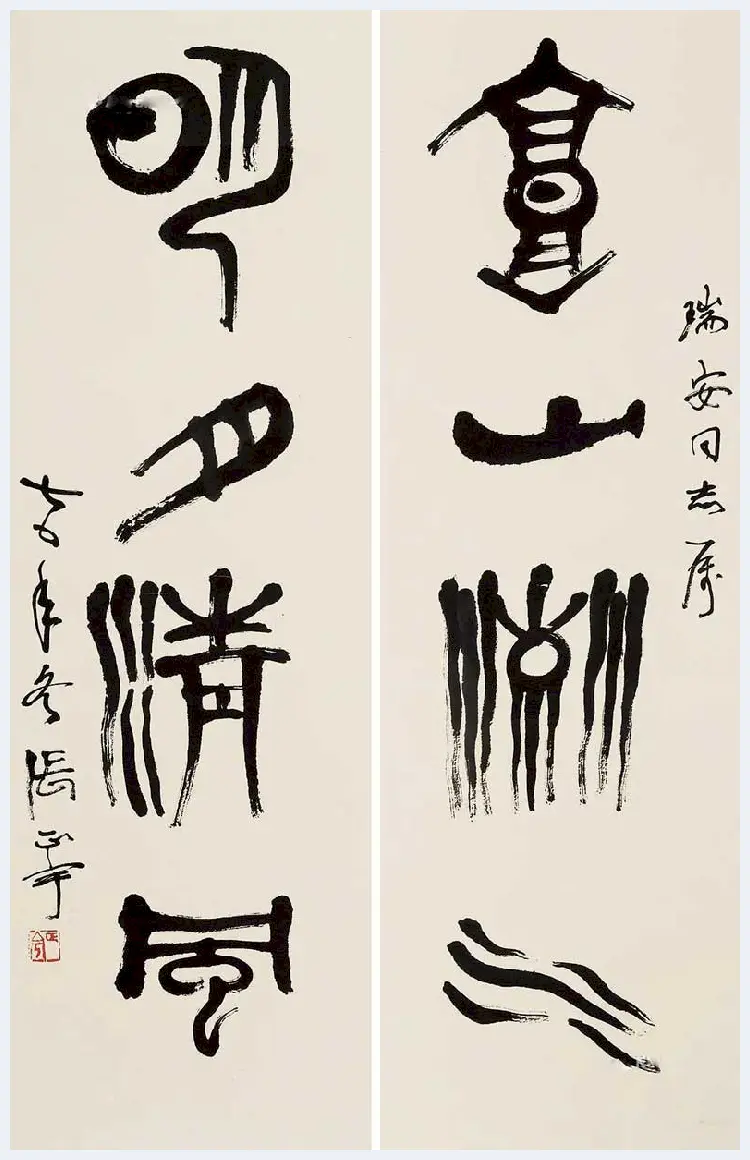 瑞安同志属
高山流水
明月清风
七五年冬張正宇